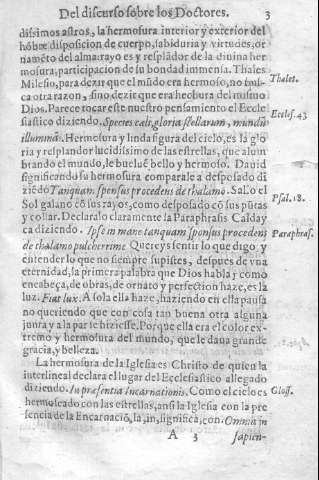 Del discurso sobre los Doctores. 3
dissimos astros, la hermosura interior y exterior del
hõbre disposicion de cuerpo, sabiduria y virtudes, or
namẽto del alma: rayo es y resplãdor de la divina her
mosura, participacion de su bondad immensa. Thales
Milesio, para dezir que el mũdo era hermoso, no bus-
Thalet.
ca otra razon, sino dezir que era hechura del mismo
Dios. Parece tocar este nuestro pensamiento el Eccle
Eccles. 43
siastico diziendo. Species cæli, gloria stellarum, mundũ
illuminãs. Hermosura y linda figura del cielo, es la glo
ria y resplandor lucidissimo de las estrellas, que alum
brando el mundo, le buelvẽ bello y hermoso. David
significando su hermosura comparale a desposado di
ziẽdo Tanquam sponsus procedens de thalamo. Sal͂e el
Psal. 18.
Sol galano cõ sus rayos, como desposado cõ sus pũtas
y collar. Declaralo claramente la Paraphrasis Calday
ca diziendo. Ipse in mane tanquam sponsus procedens
Paraphras.
de thalamo pulcherrime Quereys sentir lo que digo, y
entender lo que no siempre supistes, despues de vna
eternidad, la primera palabra que Dios habla y como
encabeça, de obras, de ornato y perfection haze, es la
luz. Fiat lux. A sola ella haze, haziendo en ella pausa
no queriendo que con cosa tan buena otra alguna
junta y a la par se hiziesse. Porque ella era el color ex-
tremo y hermosura del mundo, que le dava grande
gracia, y belleza.
La hermosura de la Iglesia es Christo de quien la
interlineal declara el lugar del Ecclesiastico allegado
diziendo. In præsentia incarnationis. Como el cielo es
Gloss.
hermoseado con las estrellas, ansi la Iglesia con la pre
sencia de la Encarnaciõ, la, in, significa, con. Omnia in
A 3 sapien-